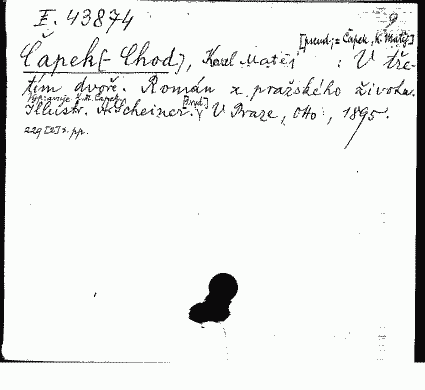 E. 43874
9
[pseud; = Čapek, K. Matěj]
Čapek(-Chod), Karel Matěj : V tře-
tím dvoře. Román z pražského života.
Vypravuje K. M. Čapek
Illustr. A. Scheiner. V Praze, Otto, 1895.
229 [2] s. pp.